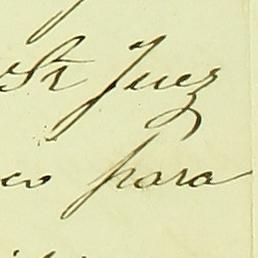 Sr Juez
co para